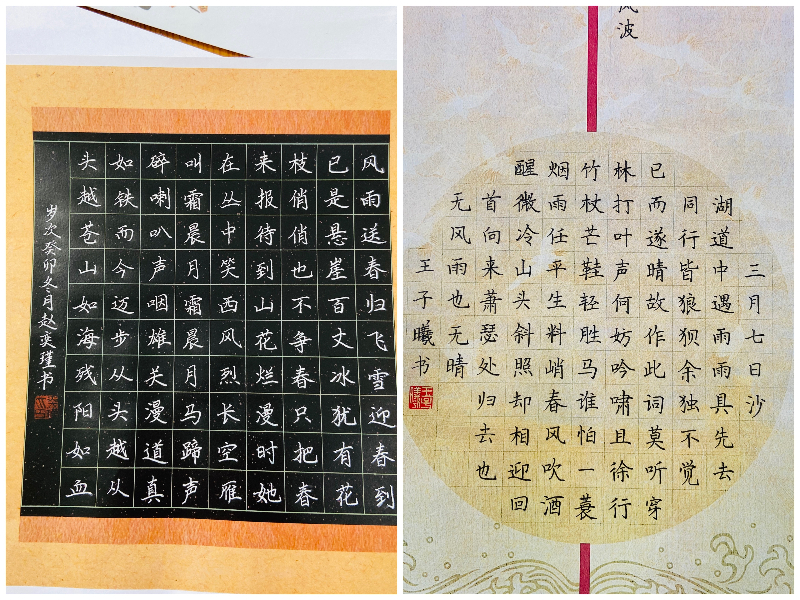 风雨送春归飞雪迎春到
已是悬崖百丈冰犹有花
枝俏俏也不争春只把春
来报待到山花烂漫时她
在丛中笑西风烈长空雁
叫霜晨月霜晨月马蹄声
碎喇叭声咽雄关漫道真
如铁而今迈步从头越从
头越苍山如海残阳如血
岁次癸卯冬月赵奕瑾书
风波
三月七日沙
湖道中遇雨雨具先去
同行皆狼狈余独不觉
已而遂晴故作此词莫听穿
林打叶声何妨吟啸且徐行
竹杖芒鞋轻胜马谁怕一蓑
烟雨任平生料峭春风吹酒
醒微冷山头斜照却相迎回
首向来萧瑟处归去也
无风雨也无晴
王子曦书